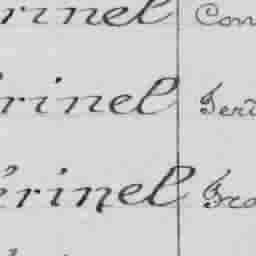 rinel Con
rinel Fer
érinel Fra